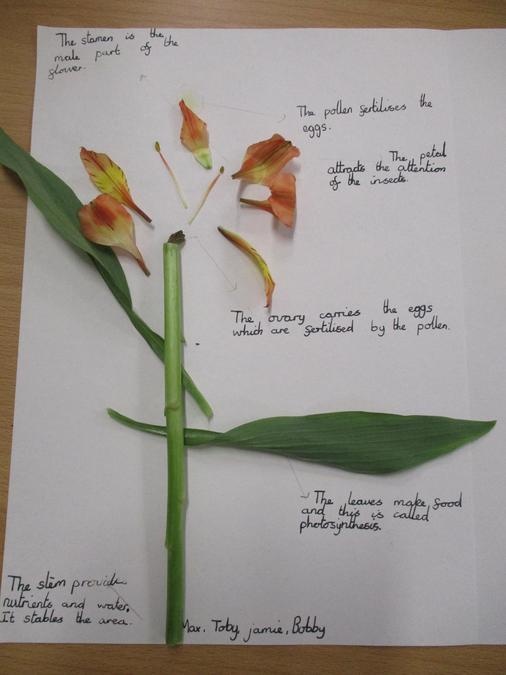 The stamen is the
male part of the
flower.
The pollen fertilises the
eggs.
The petal
attracts the attention
of the insects.
The ovary carries the eggs
which are fertilised by the pollen.
The leaves make food
and this is called
photosynthesis.
The stem provide
nutrients and water.
It stables the area.
Max, Toby, jamie, Bobby